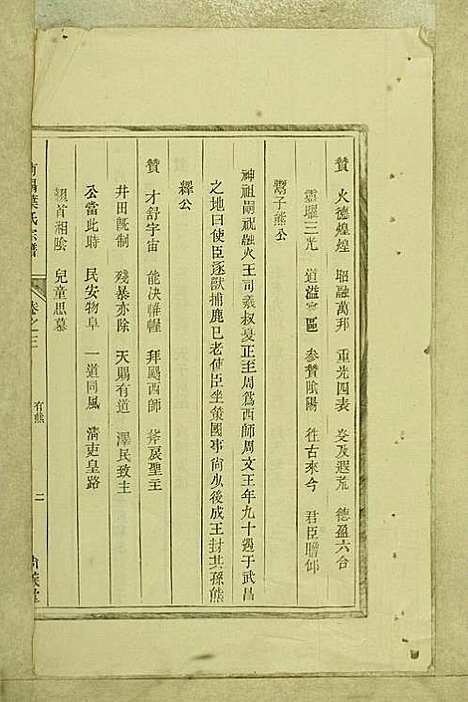 贊 火德煌煌 昭融萬邦 重光四表 爰及遐荒 德盈六合
靈曜三光 道溢寰區 參贊陰陽 往古來今 君臣瞻仰
鬻子熊公
神祖嗣祝融火王司羲叔夏正至周爲西師周文王年九十遇于武昌
之地曰使臣逐獸捕鹿已老使臣坐策國事尚少後成王封其孫熊
繹公
贊 才舒宇宙 能决帷幄 拜颺西師 黼扆聖主
井田旣制 殘暴亦除 天賜有道 澤民致主
公當此時 民安物阜 一道同風 淸吏皇路
首湘陰 兒童思慕
葉氏宗譜 卷之三 有熊 二